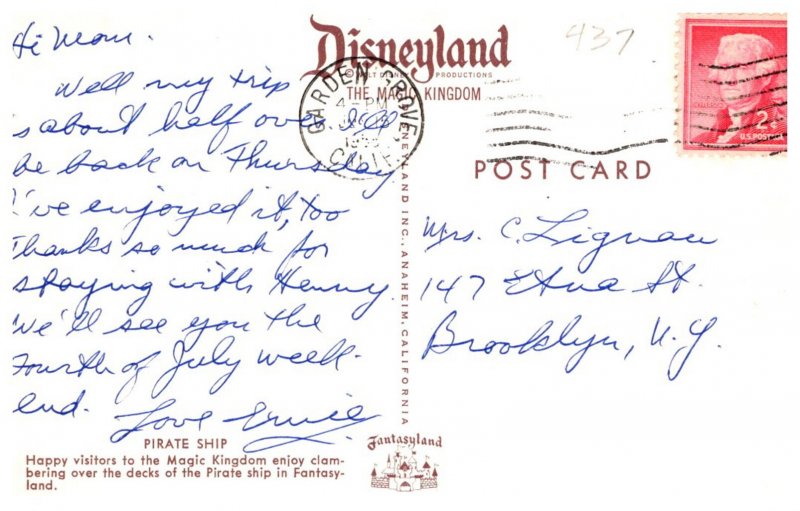 Hi Mom.
Well my trip
is about half over I'll
be back on Thursday
I've enjoyed it, too
Thanks so much for
staying with Henny.
We'll see you the
Fourth of July week-
end.
Love Ernie
PIRATE SHIP
Happy visitors to the Magic Kingdom enjoy clam-
bering over the decks of the Pirate ship in Fantasy-
land.
Disneyland
© WALT DISNEY PRODUCTIONS
THE MAGIC KINGDOM
GARDEN GROVE
4 - PM
CALIF.
DISNEYLAND INC., ANAHEIM, CALIFORNIA
Fantasyland
437
JEFFERSON
2¢
U.S. POSTAGE
POST CARD
Mrs. C. Lignau
147 Etna St.
Brooklyn, N.Y.